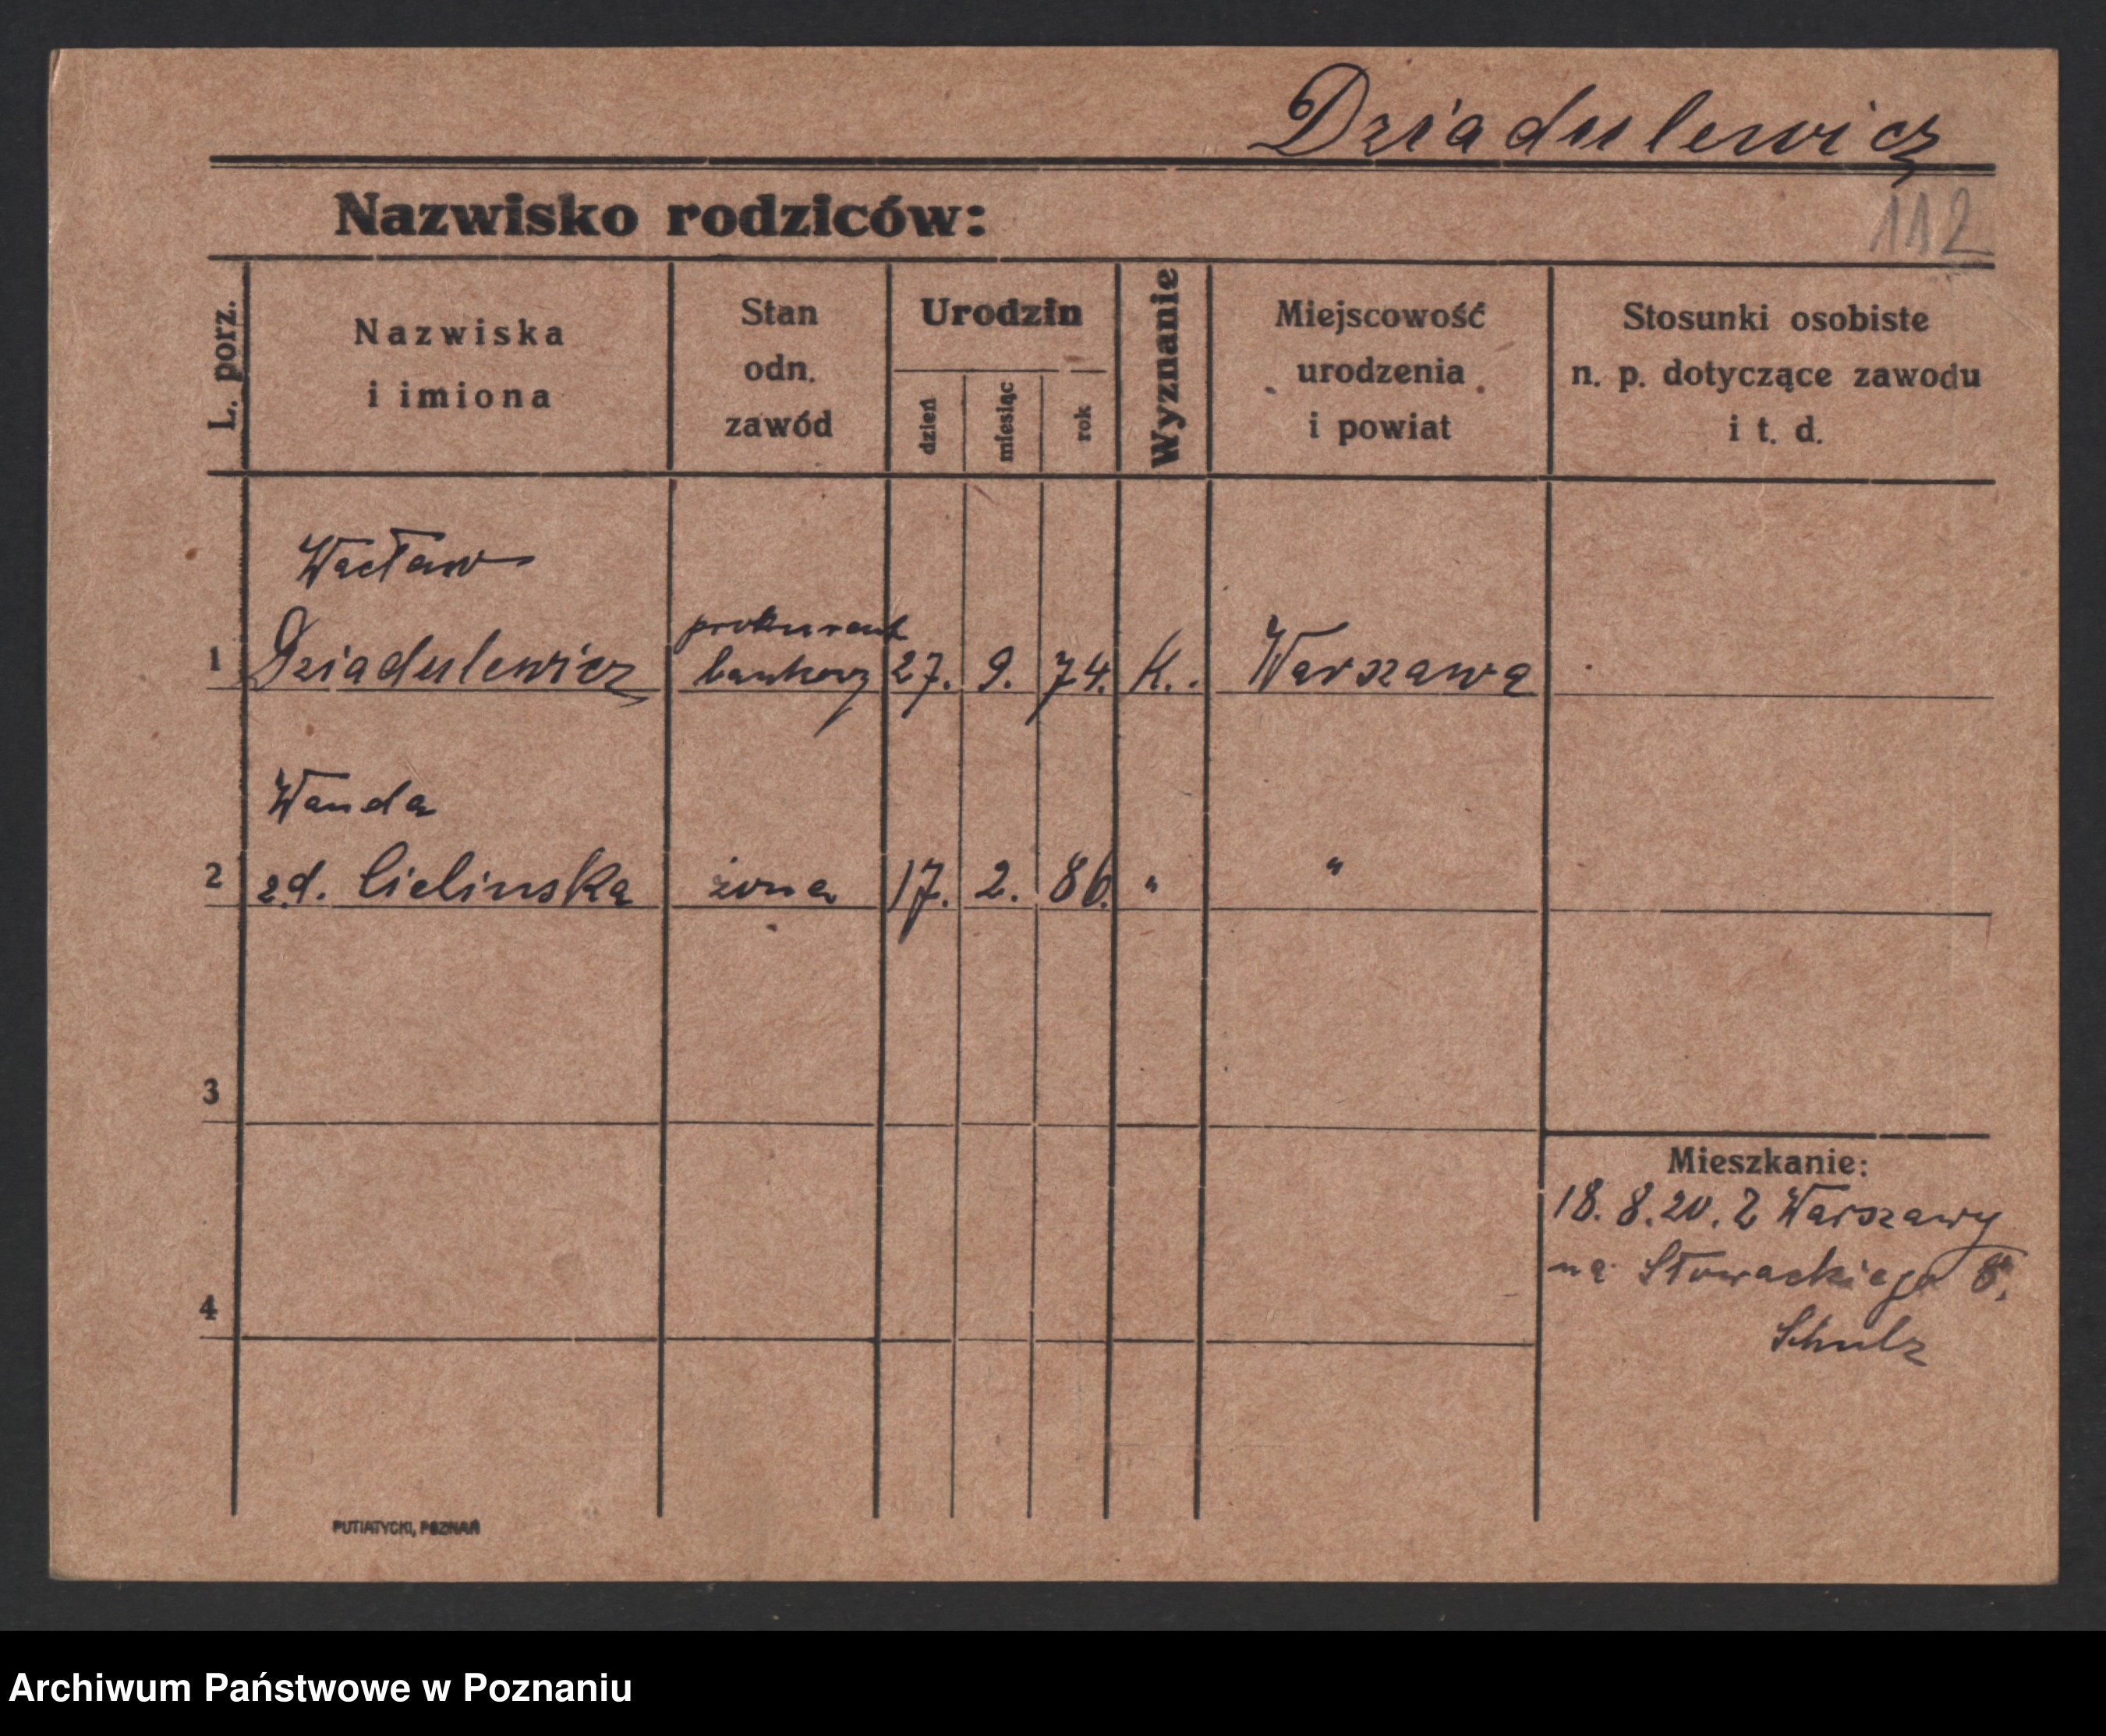 Dziadulewicz
Nazwisko rodziców:
112
L. porz.
Nazwiska
i imiona
Stan
odn.
zawód
Urodzin
dzień
miesiąc
rok
Wyznanie
Miejscowość
urodzenia
i powiat
Stosunki osobiste
n. p. dotyczące zawodu
i t. d.
Wacław
prokurent
1 Dziadulewicz bankowy 27. 9. 74. K. Warszawa
Wanda
2 z d. Cielinska żona 17. 2. 86. " "
3
Mieszkanie:
18. 8. 20. Z Warszawy
na Słowackiego 8,
Schulz
4
PUTIATYCKI, POZNAŃ
Archiwum Państwowe w Poznaniu